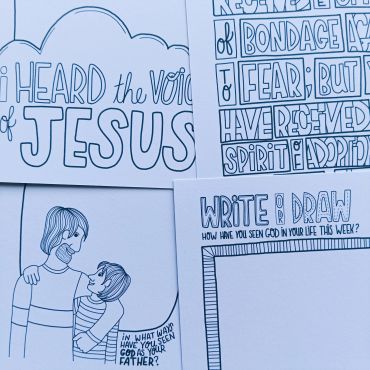 i HEARD the VOIC
of JESUS
RECEIVED
of BONDAGE AGA
TO FEAR; BUT
HAVE RECEIVED
SPIRIT of ADOPTIO
IN WHAT WAYS
HAVE YOU SEEN
GOD AS YOUR
FATHER?
WRITE OR DRAW
HOW HAVE YOU SEEN GOD IN YOUR LIFE THIS WEEK?